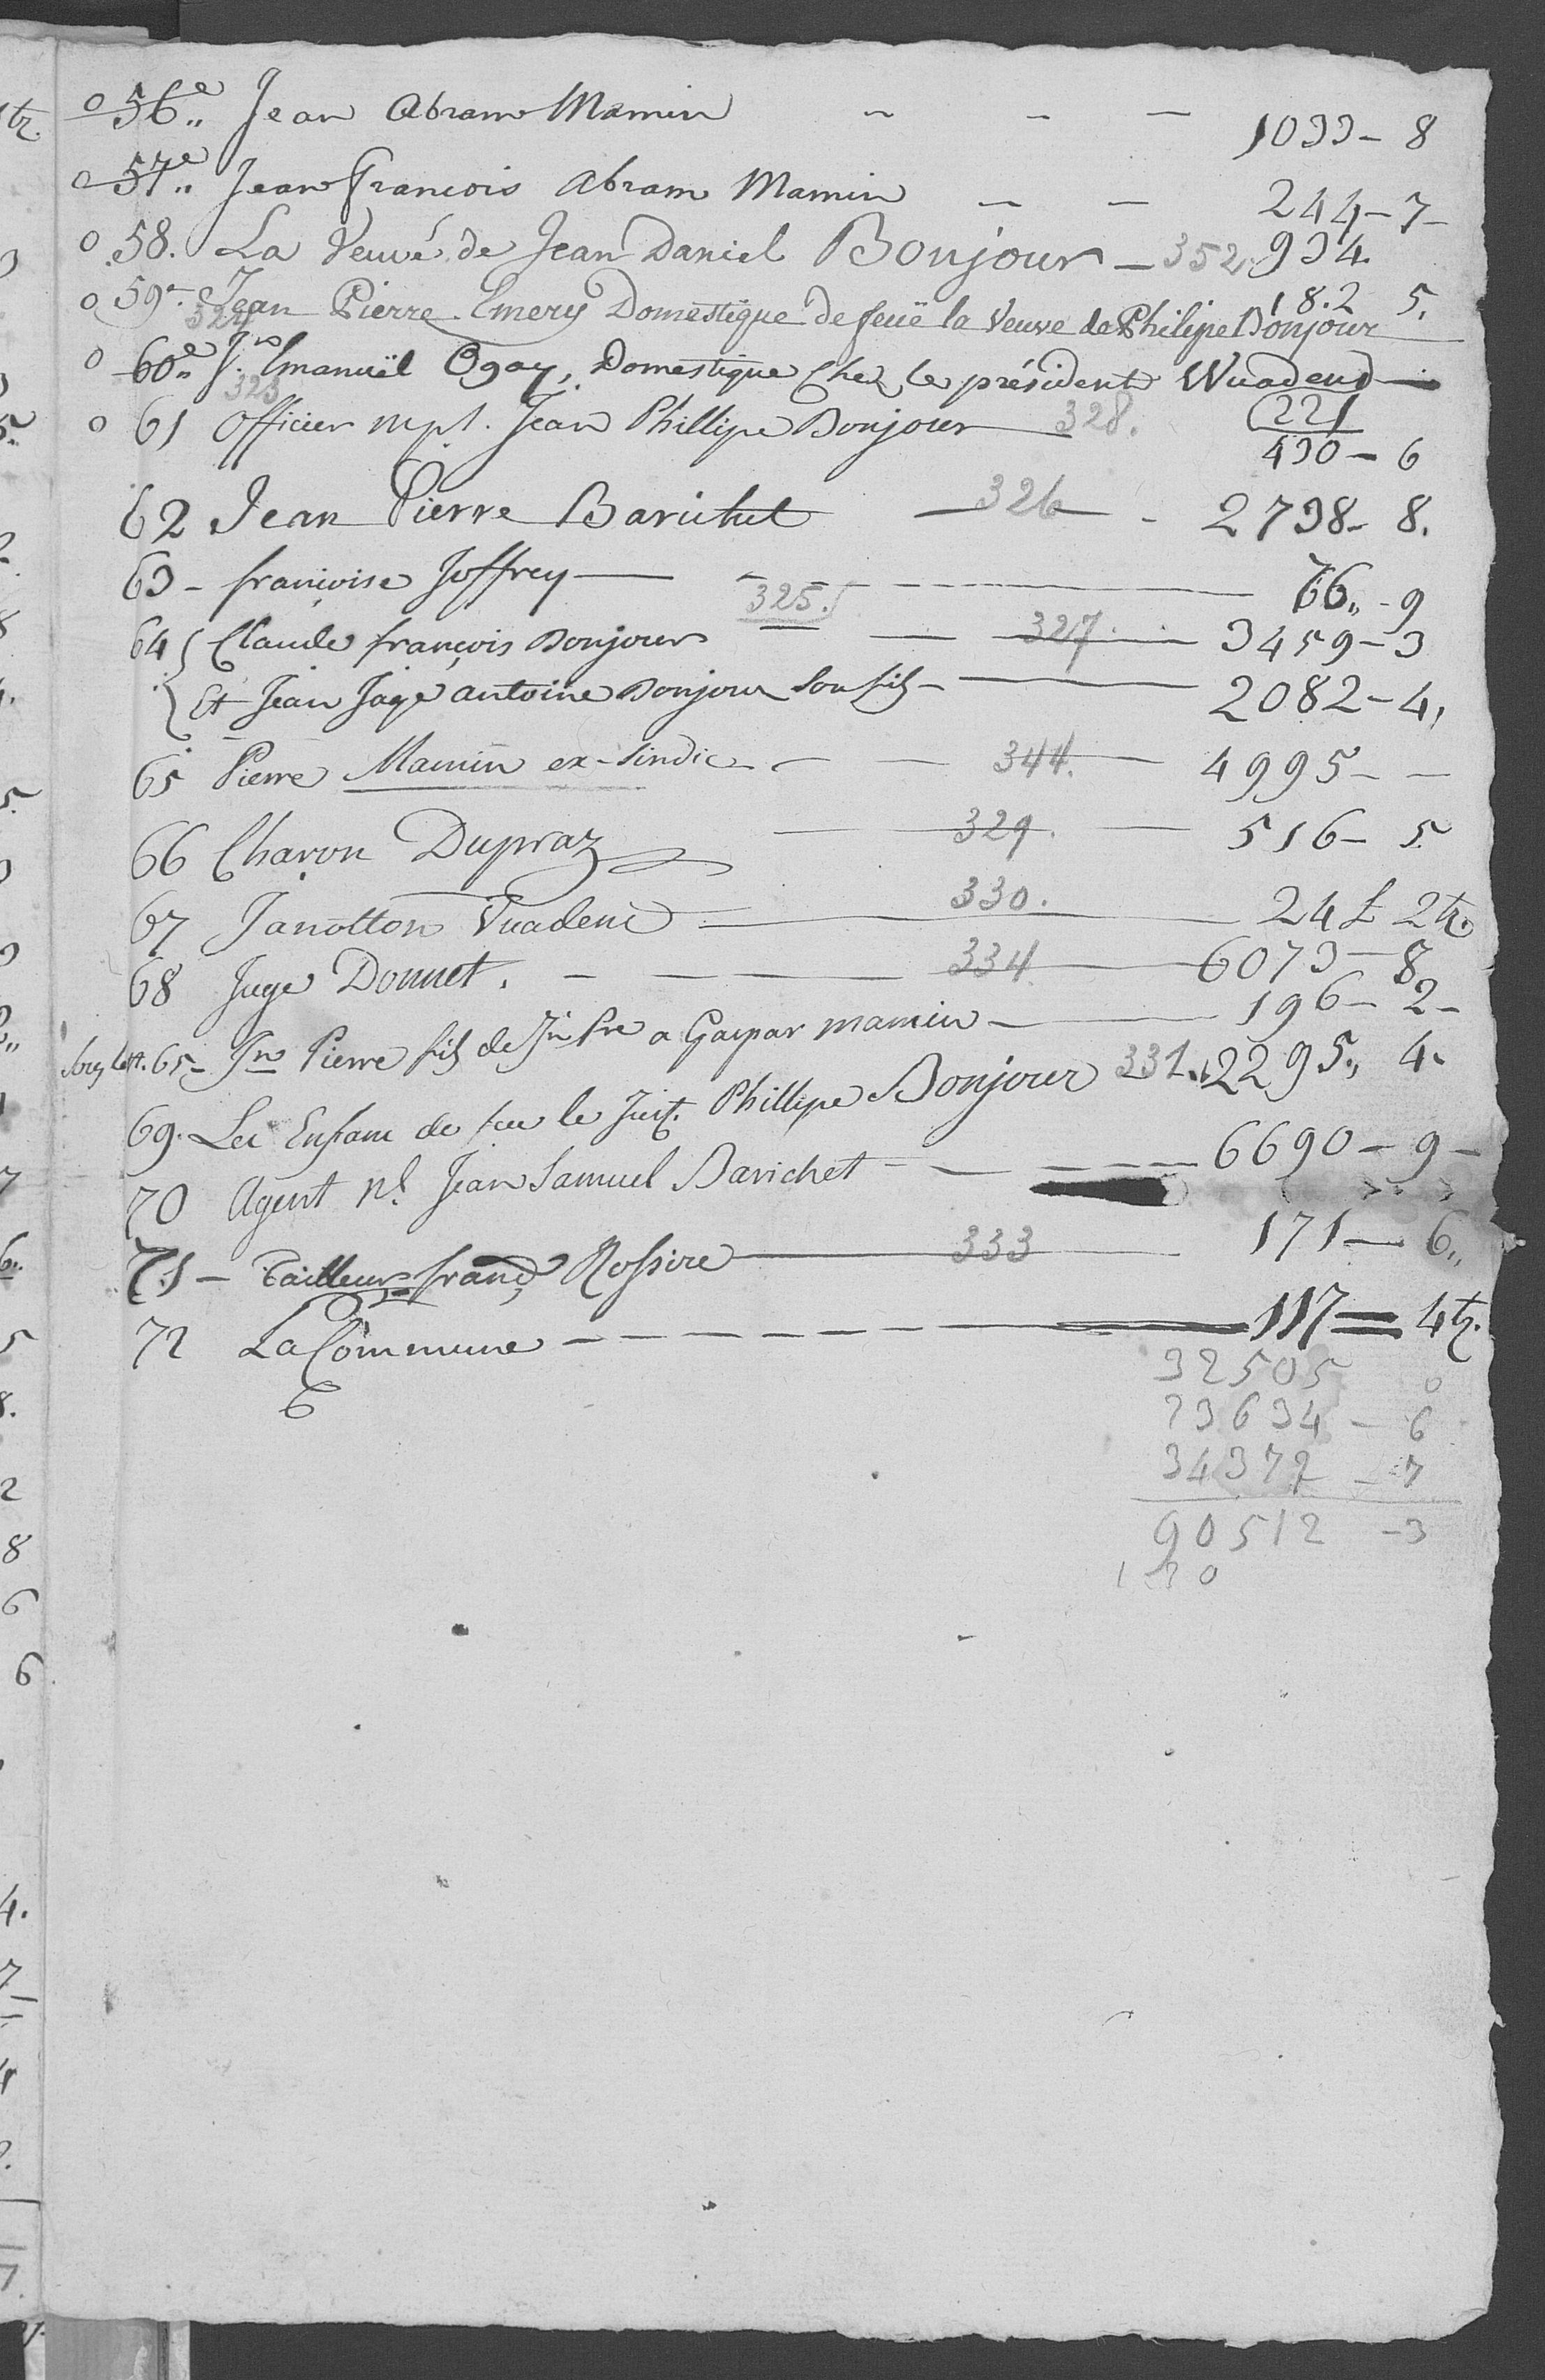 o 56e,, Jean Abram Mamin - - - 1033 - 8
o 57e,, Jean François Abram Mamin - - 244 - 7 -
o 58. La Veuve de Jean Daniel Bonjour - 352. 934.
o 59e Jean Pierre Emery Domestique de feuë la Veuve de Philipe Bonjour 18.2 5.
324
o 60e,, Jn Emanuël Ogay, Domestique Chez le président Wuadend - 221
323
o 61 Officier mpl. Jean Phillipe Bonjour 328. 430 - 6
62 Jean Pierre Barichet 326 - 2738 - 8.
63 - françoise Joffrey - 76,, - 9
325.
64 { Claude françois Bonjour 327. 3459 - 3
Et Jean Jaqe antoine Bonjour Son fils - 2082 - 4,
65 Pierre Mamin ex-Sindic - 344. 4995 - -
66 Charon Dupraz 329. 516 - 5
67 Janotton Vuadend 330. 24 £ 2 tz.
68 Juge Donnet. - 334 6073 - 8
65 - Jn Pierre fils de Jn Pre a Gaspar mamin - 196 - 2 -
69. Les Enfans de feu le Phillipe Bonjour 331. 2295,, 4.
70 Agent nl. Jean Samuel Barichet - 6690 - 9 -
71 - Tailleur franç Rossire 333 171 - 6,,
72 La Commune - 117 = 4 tz.
32505 0
23634 - 6
34372 - 7
90512 - 3